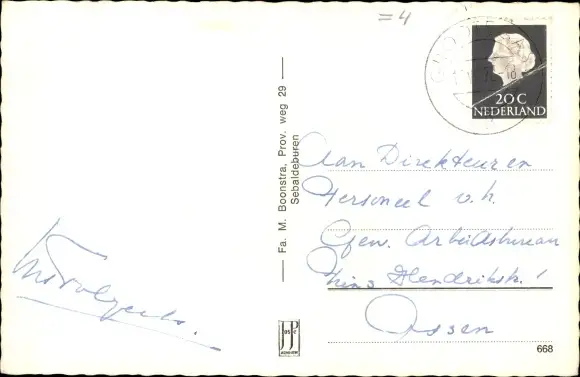 =4
20 C
NEDERLAND
Fa. M. Boonstra, Prov. weg 29
Sebaldeburen
Aan Direkteur en
Personeel v.h.
Gew. Arbeidsbureau
Prins Hendrikstr. 1
Assen
668